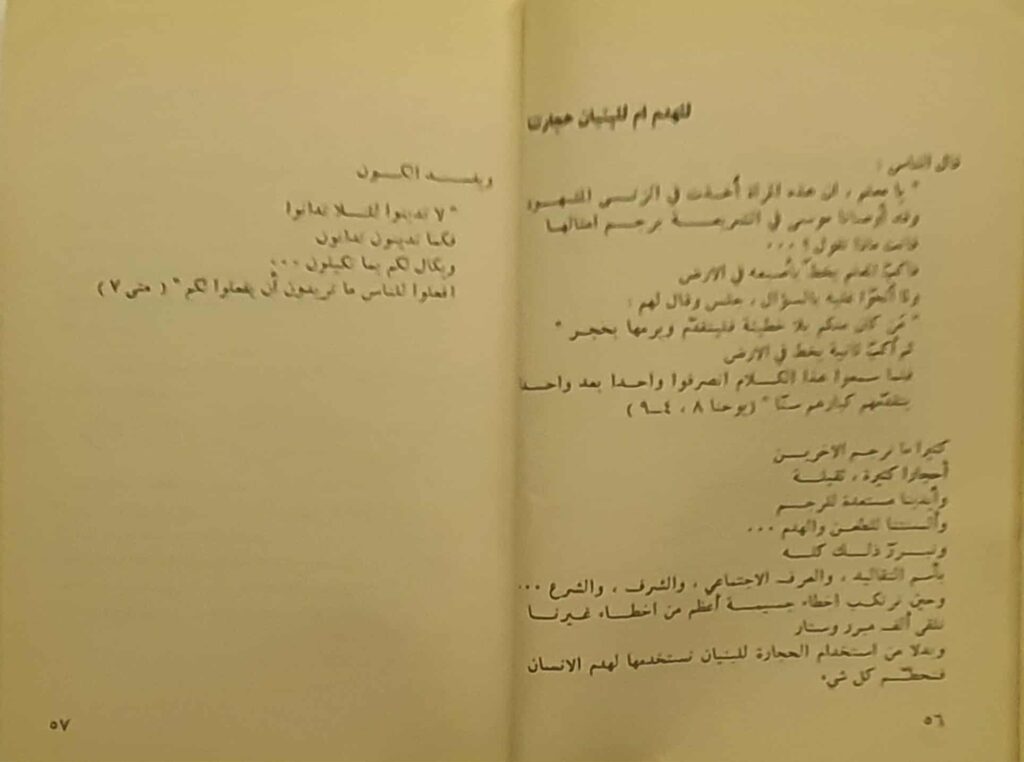 للهدم ام للبنيان حجارتنا
قال الناس :
" يا معلم ، ان هذه المرأة أُخذت في الزنى المشهود
وقد أوصانا موسى في الشريعة برجم امثالها
فأنت ماذا تقول ؟ ...
فاكبّ المعلم يخطّ بأصبعه في الارض
ولما ألحّوا عليه بالسؤال ، جلس وقال لهم :
" مَن كان منكم بلا خطيئة فليتقدّم ويرمها بحجر "
ثم أكبّ ثانية يخط في الارض
فلما سمعوا هذا الكلام انصرفوا واحدا بعد واحد
يتقدّمهم كبارهم سنّا " (يوحنا ٨ ، ٤-٩ )
كثيرا ما نرجم الاخرين
أحجارنا كثيرة ، ثقيلة
وأيدينا مستعدة للرجم
وألسنتنا للطعن والهدم ...
ونبرّر ذلك كله
بأسم التقاليد ، والعرف الاجتماعي ، والشرف ، والشرع ...
وحين نرتكب اخطاء جسيمة أعظم من اخطاء غيرنا
نلقى ألف مبرر وستار
وبدلا من استخدام الحجارة للبنيان نستخدمها لهدم الانسان
فنحطّم كل شيء
٥٦
ويفسد الكون
" لا تدينوا لئلا تدانوا
فكما تدينون تدانون
ويكال لكم بما تكيلون ...
افعلوا للناس ما تريدون أن يفعلوا لكم " ( متى ٧ )
٥٧